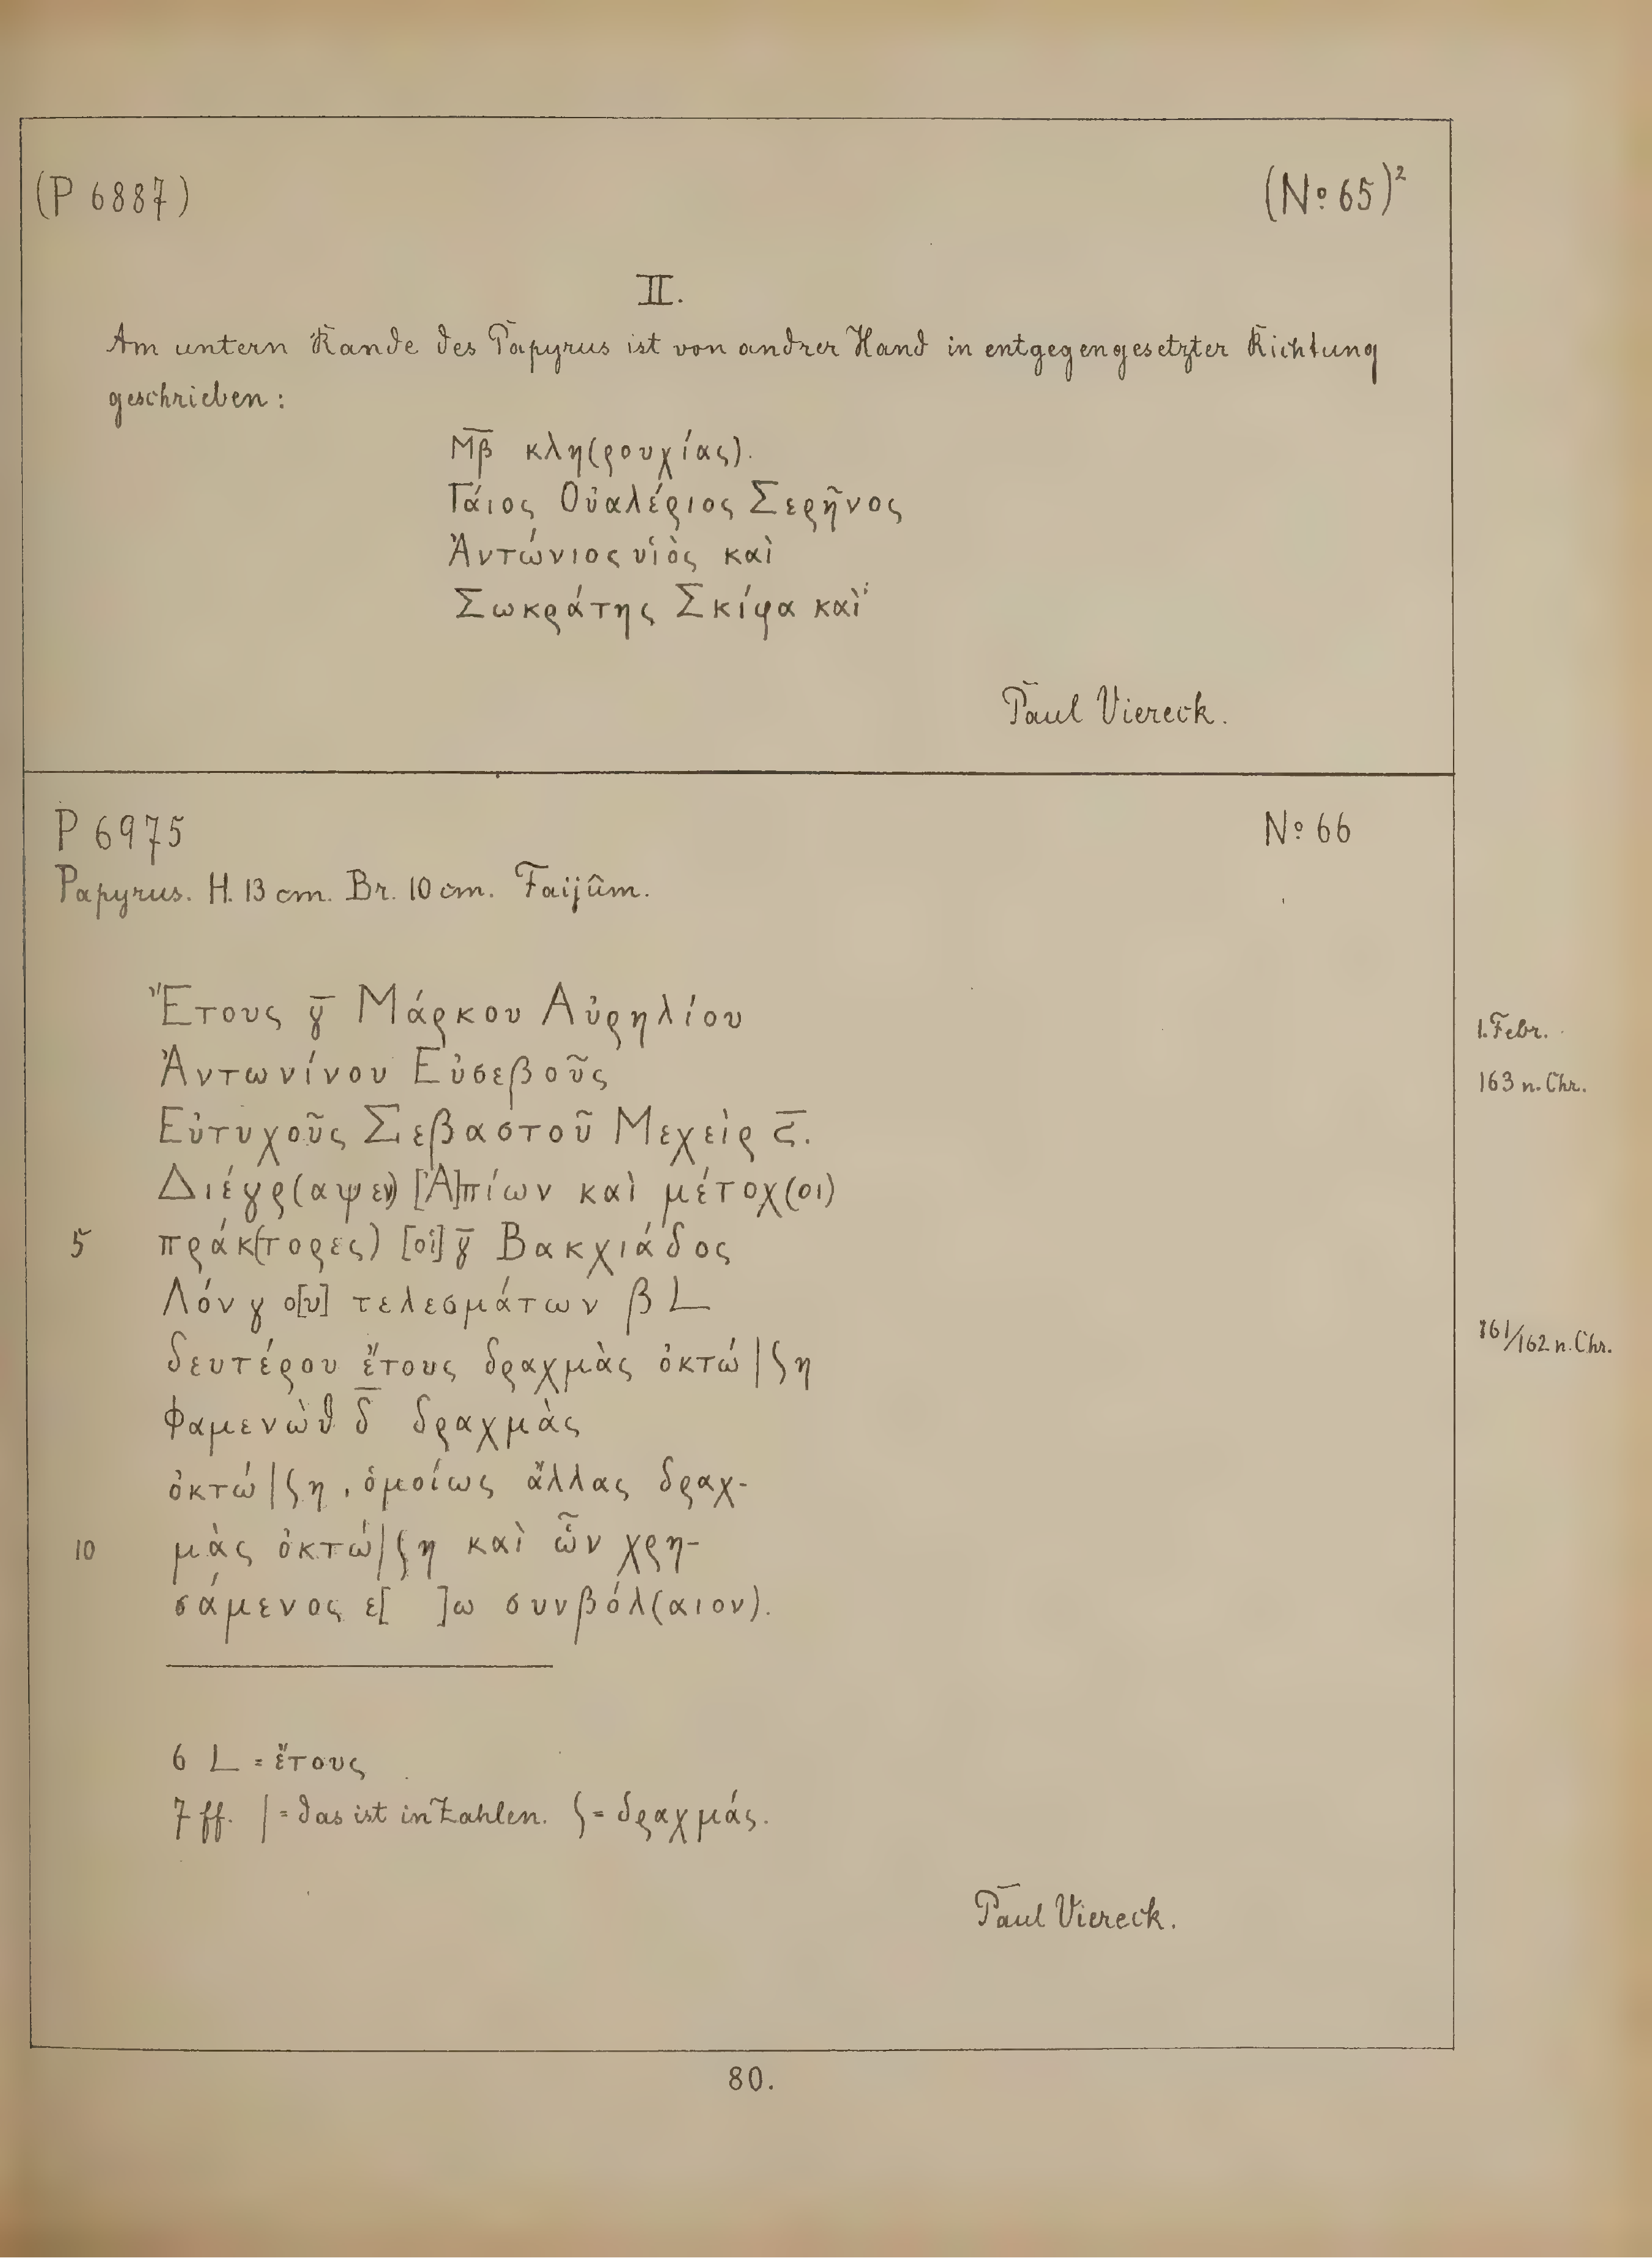 (P 6887)
(Nº 65)²
II.
Am untern Rande des Papyrus ist von andrer Hand in entgegengesetzter Richtung
geschrieben:
Μβ̅ κλη(ρουχίας).
Γάιος Οὐαλέριος Σερῆνος
Ἀντώνιος υἱὸς καὶ
Σωκράτης Σκίφα καὶ
Paul Viereck.
P 6975
Nº 66
Papyrus. H. 13 cm. Br. 10 cm. Faijûm.
Ἔτους γ̅ Μάρκου Αὐρηλίου
1. Febr.
Ἀντωνίνου Εὐσεβοῦς
163 n. Chr.
Εὐτυχοῦς Σεβαστοῦ Μεχεὶρ ϛ̅.
Διέγρ(αψεν) [Ἀ]πίων καὶ μέτοχ(οι)
5 πράκ(τορες) [οἱ] γ̅ Βακχιάδος
Λόνγο[υ] τελεσμάτων β L
161/162 n. Chr.
δευτέρου ἔτους δραχμὰς ὀκτώ | ϛ η
Φαμενὼθ δ̅ δραχμὰς
ὀκτώ | ϛ η, ὁμοίως ἄλλας δραχ-
10 μὰς ὀκτώ | ϛ η καὶ ὧν χρη-
σάμενος ε[ ]ω συνβόλ(αιον).
6 L = ἔτους
7 ff. | = das ist in Zahlen. ϛ = δραχμάς.
Paul Viereck.
80.